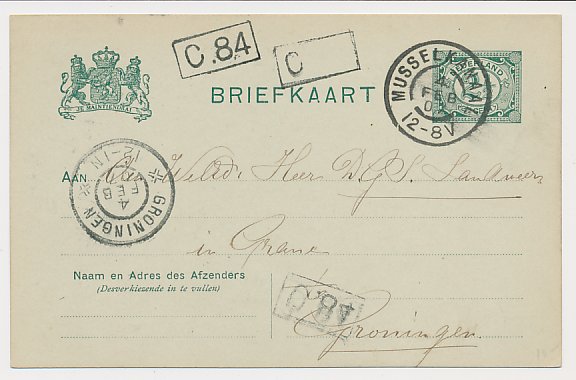 C.84
C
MUSSELKANAAL
FEB
12-8V
NEDERLAND
JE MAINTIENDRAI
BRIEFKAART
GRONINGEN
12-1N
4 FEB
AAN
Den WelEd. Heer D.G.S.
in Granen
Groningen.
Naam en Adres des Afzenders
(Desverkiezende in te vullen)
C.84